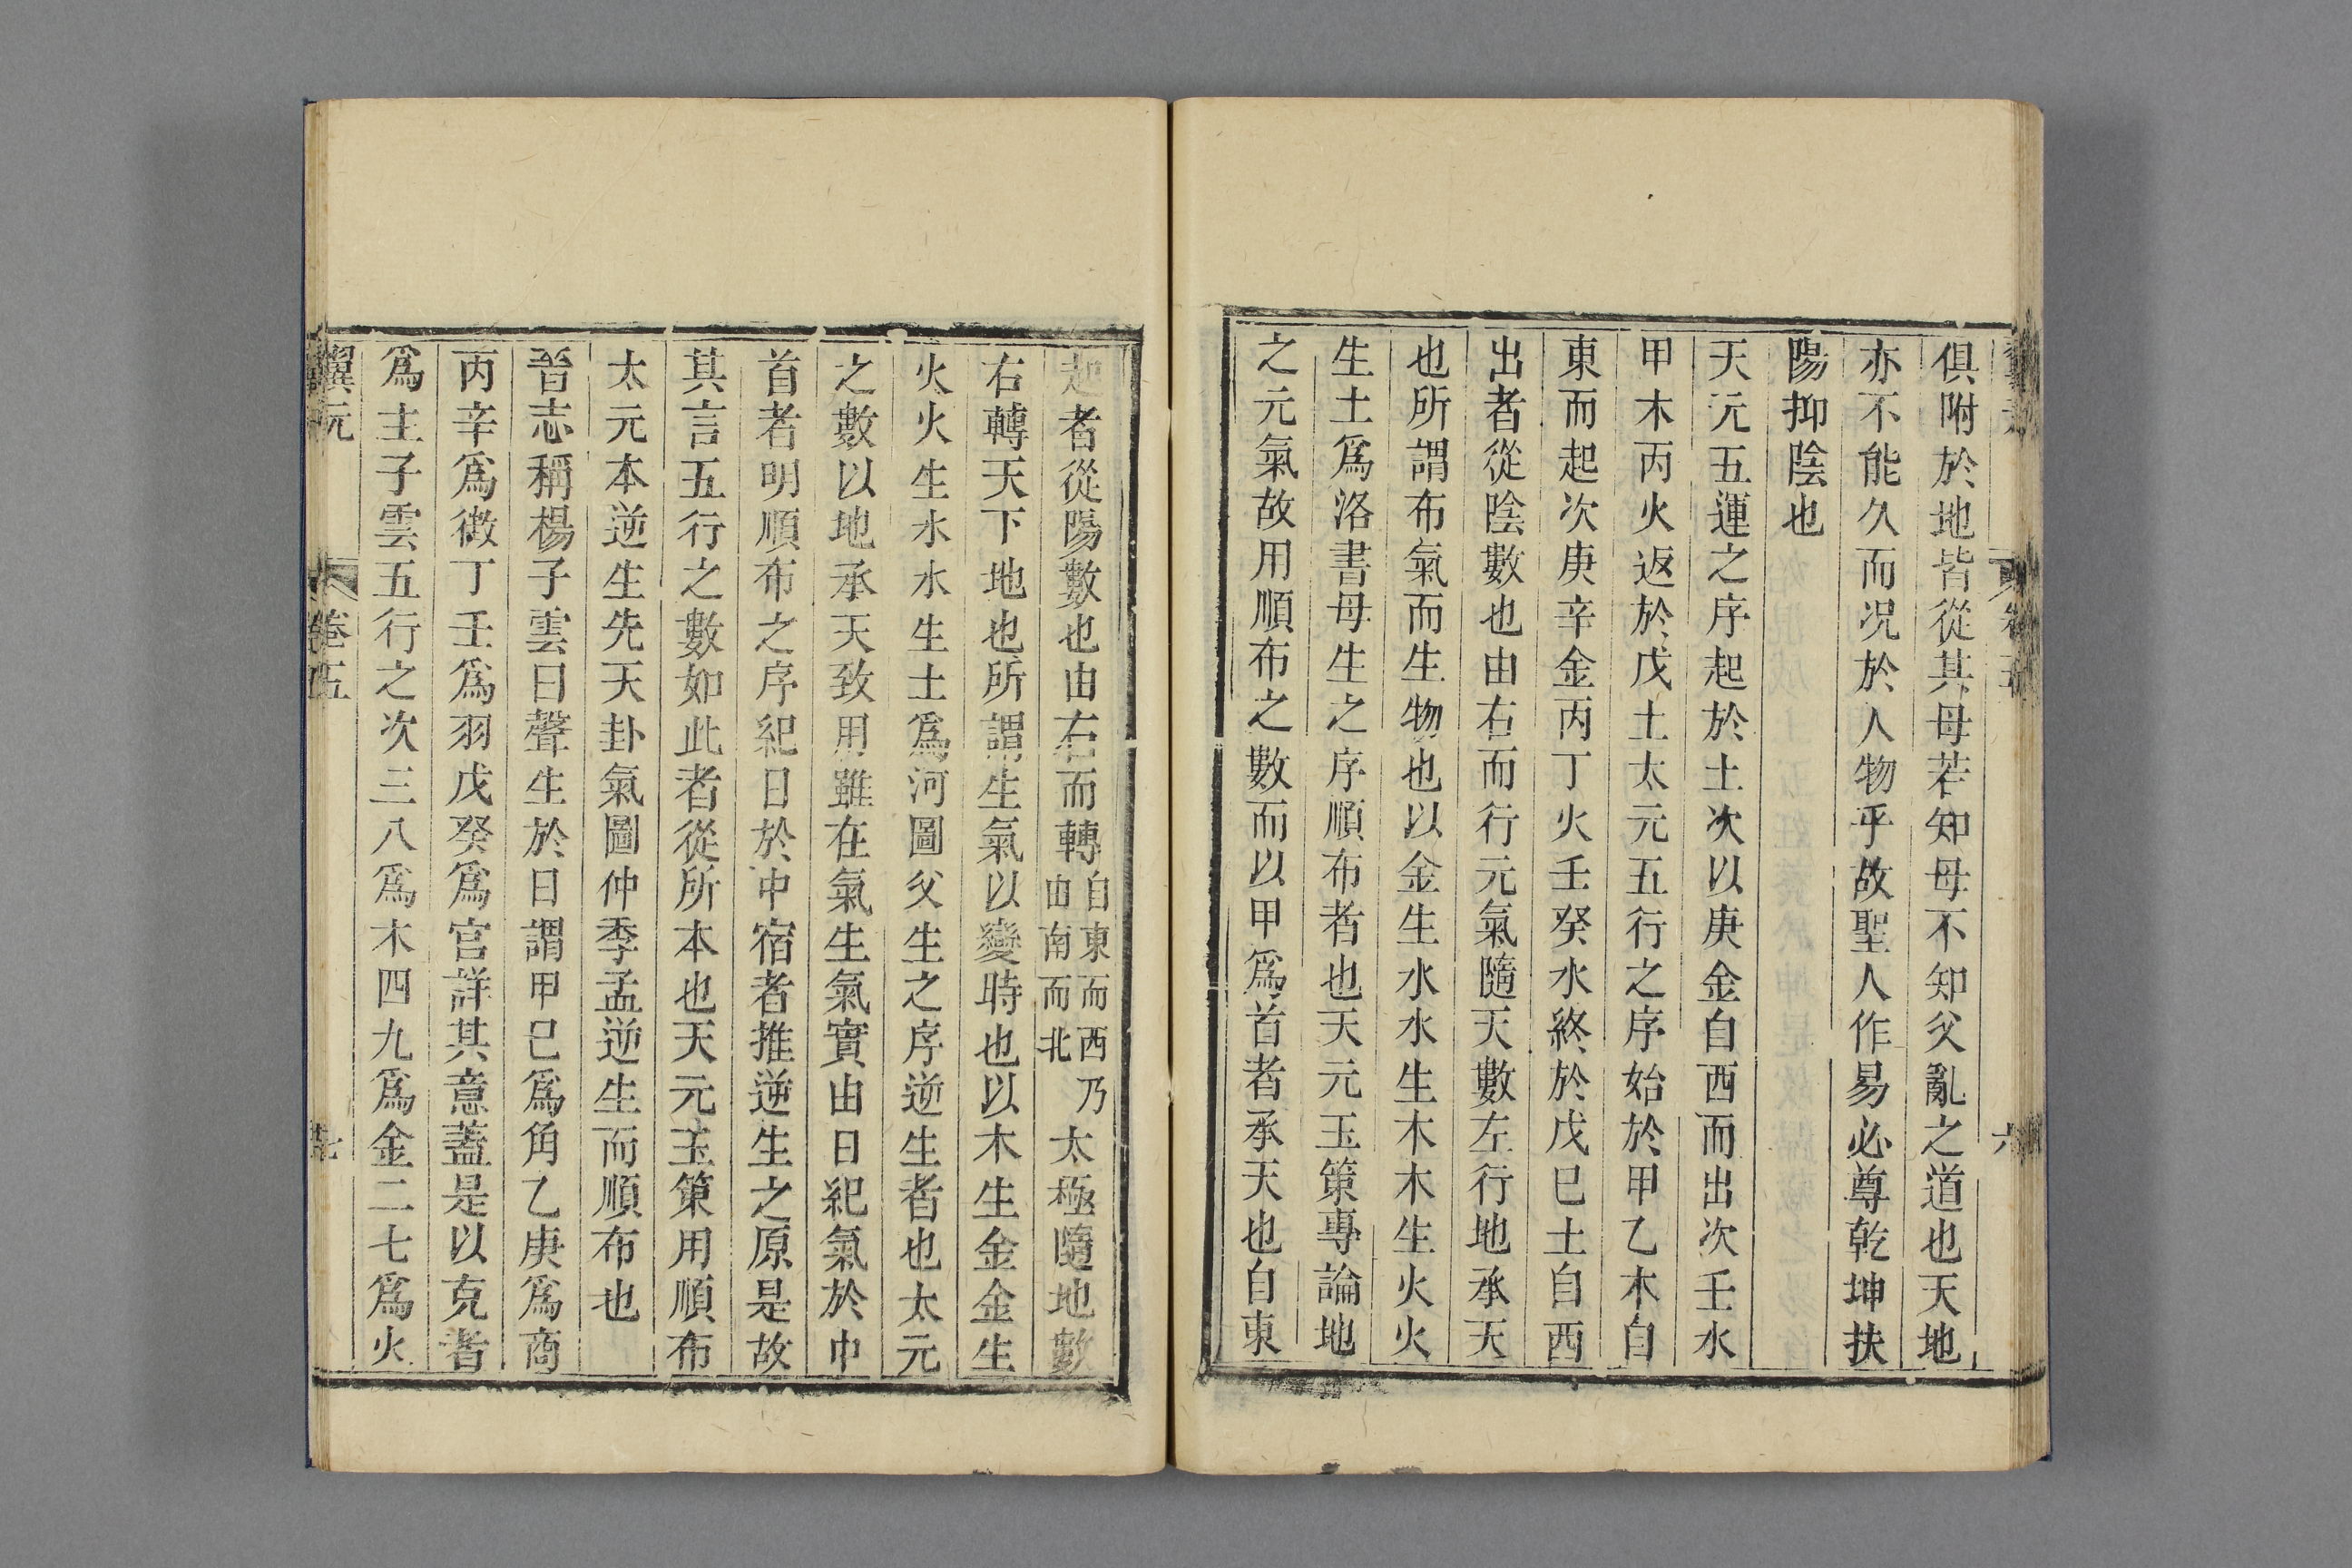 卷五
六
俱附於地皆從其母若知母不知父亂之道也天地
亦不能久而況於人物乎故聖人作易必尊乾坤扶
陽抑陰也
天元五運之序起於土次以庚金自西而出次壬水
甲木丙火返於戊土太元五行之序始於甲乙木自
東而起次庚辛金丙丁火壬癸水終於戊巳土自西
出者從陰數也由右而行元氣隨天數左行地承天
也所謂布氣而生物也以金生水水生木木生火火
生土為洛書母生之序順布者也天元玉策專論地
之元氣故用順布之數而以甲為首者承天也自東
起者從陽數也由右而轉自東而西乃由南而北太極隨地數
右轉天下地也所謂生氣以變時也以木生金金生
火火生水水生土為河圖父生之序逆生者也太元
之數以地承天致用雖在氣生氣實由日紀氣於中
首者明順布之序紀日於中宿者推逆生之原是故
其言五行之數如此者從所本也天元玉策用順布
太元本逆生先天卦氣圖仲季孟逆生而順布也
晉志稱楊子雲曰聲生於日謂甲巳為角乙庚為商
丙辛為徵丁壬為羽戊癸為宮詳其意蓋是以克者
為主子雲五行之次三八為木四九為金二七為火
翼元
卷五
七